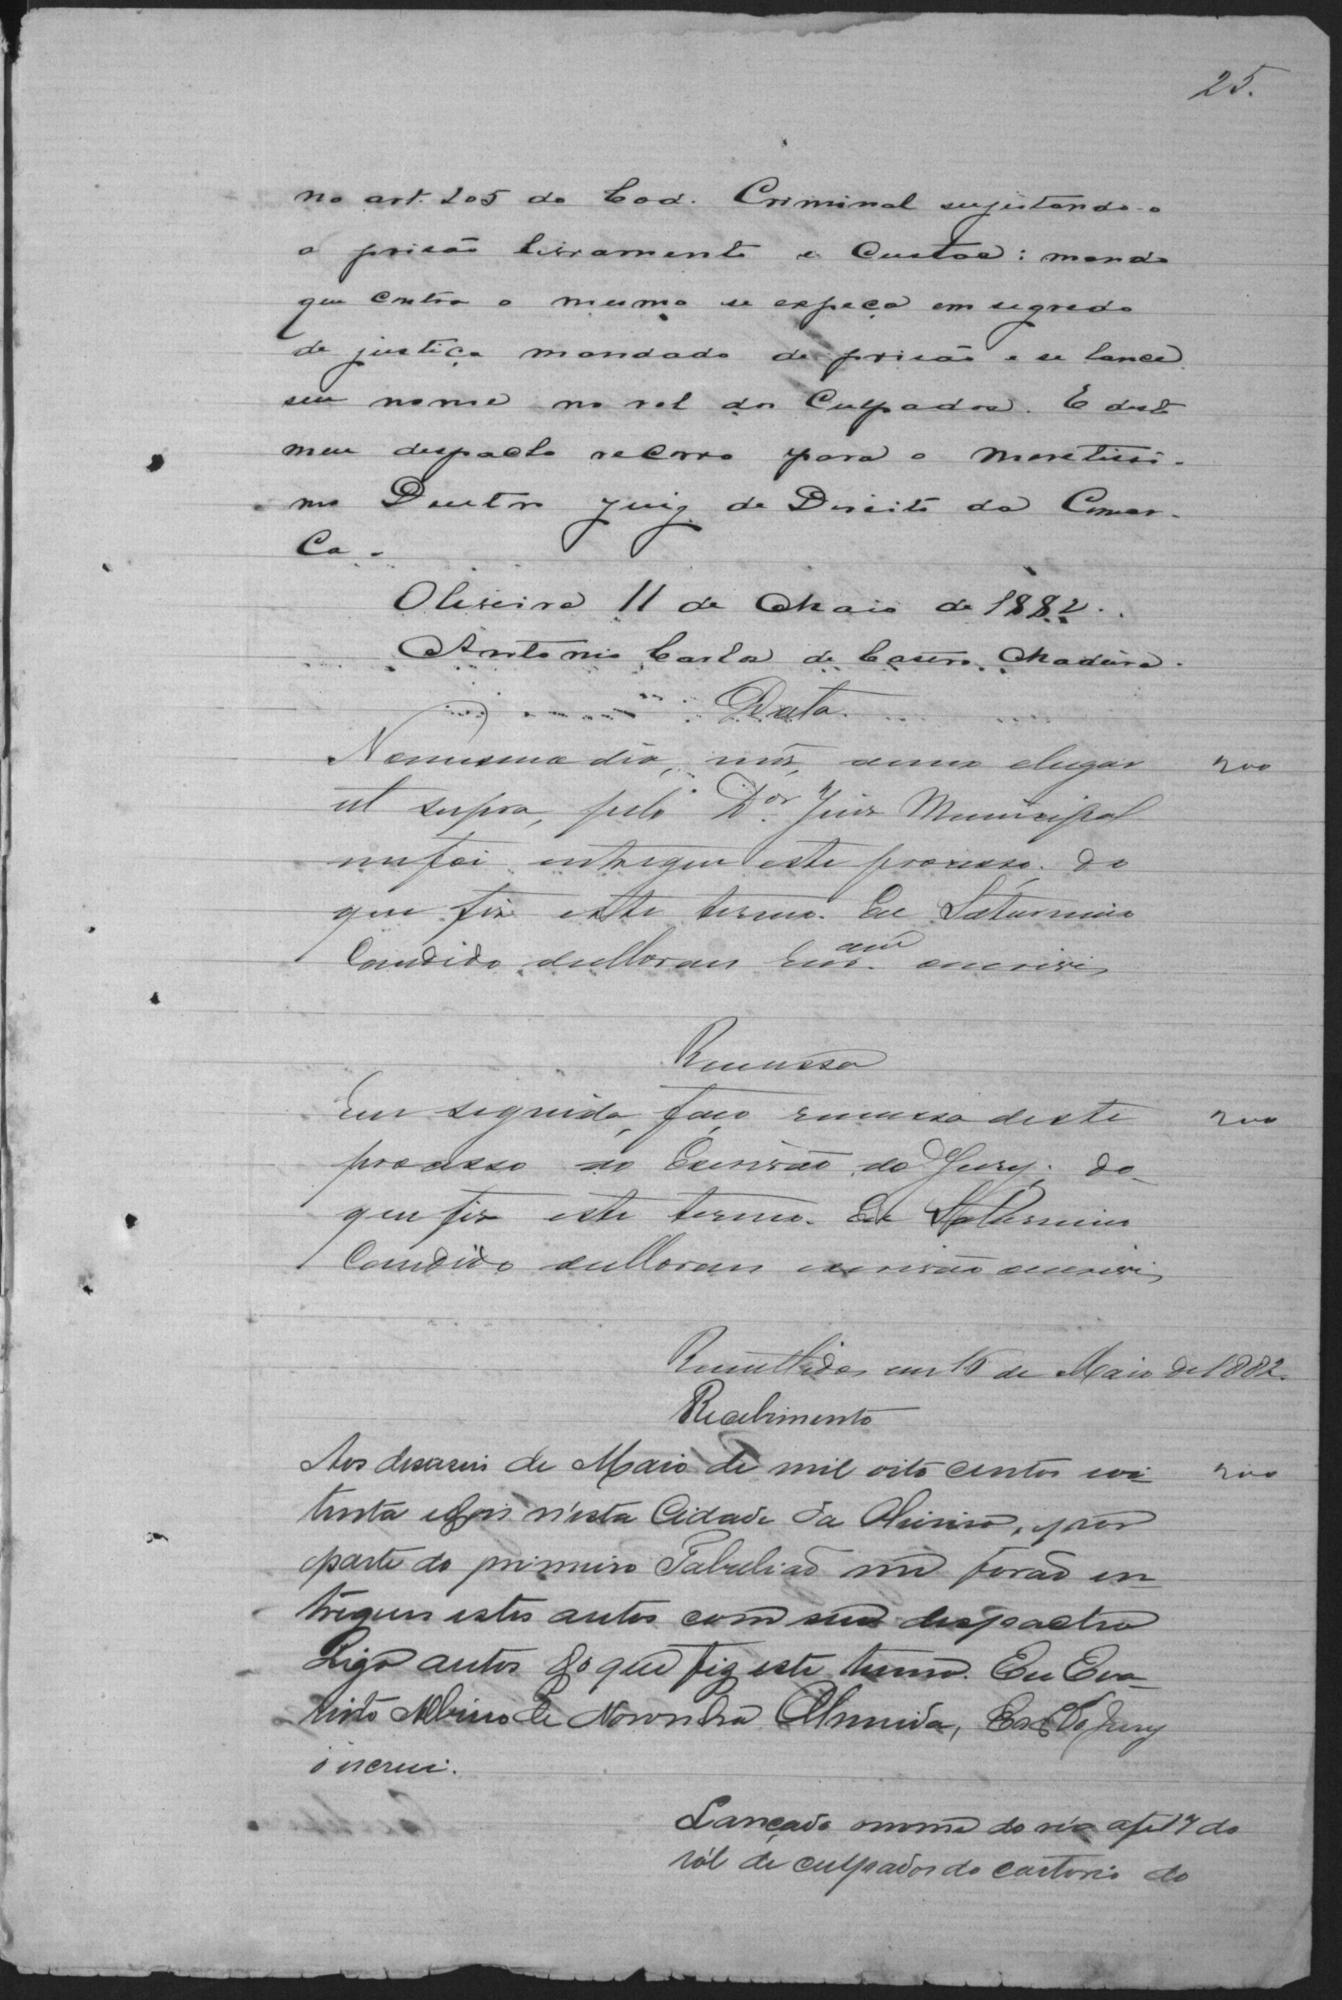 25.
no art. 205 do Cod. Criminal sujeitando-o
a prisão livramento e Custas: mando
que contra o mesmo se expeça em segredo
de justiça mandado de prisão e se lance
seu nome no rol dos Culpados. E deste
meu despacho recorro para o Meretissi-
mo Doutor Juiz de Direito da Comar-
Ca.
Oliveira 11 de Maio de 1882.
Antonio Carlos de Castro Madeira.
Data.
No mesmo dia, mes, anno e lugar 200
ut supra, pelo Dor. Juiz Municipal
me foi entregue este processo. do
que fiz este termo. Eu Saturnino
Candido de Moraes escrevi
Remessa
Em seguida, faço remessa deste 200
processo ao Escrivão do Jury. do
que fiz este termo. Eu Saturnino
Candido de Moraes escrivão escrevi
Remettidos em 15 de Maio de 1882.
Recebimento
Aos deseseis de Maio de mil oito centos e oi- 200
tenta e dois n'esta Cidade da Oliveira, por
parte do primeiro Tabelião me forão en-
tregues estes autos com seu despacho
Digo autos do que fiz este termo. Eu Eva-
risto Albino de Noronha Almeida, Esc. do Jury
o escrevi.
Lançado o nome do réo a fl 17 do
ról de culpados do cartorio do